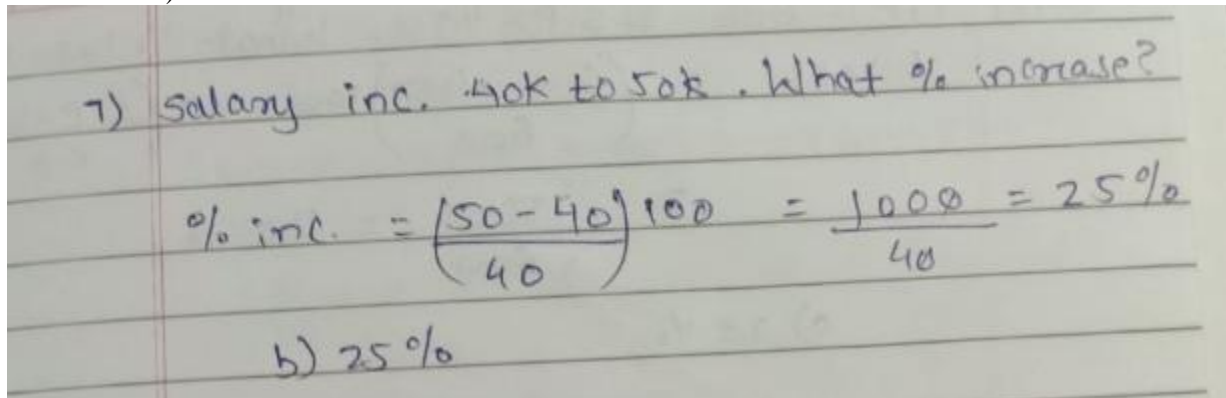 7) Salary inc. 40k to 50k. What % increase?
% inc. = (50-40/40)100 = 1000/40 = 25%
b) 25%